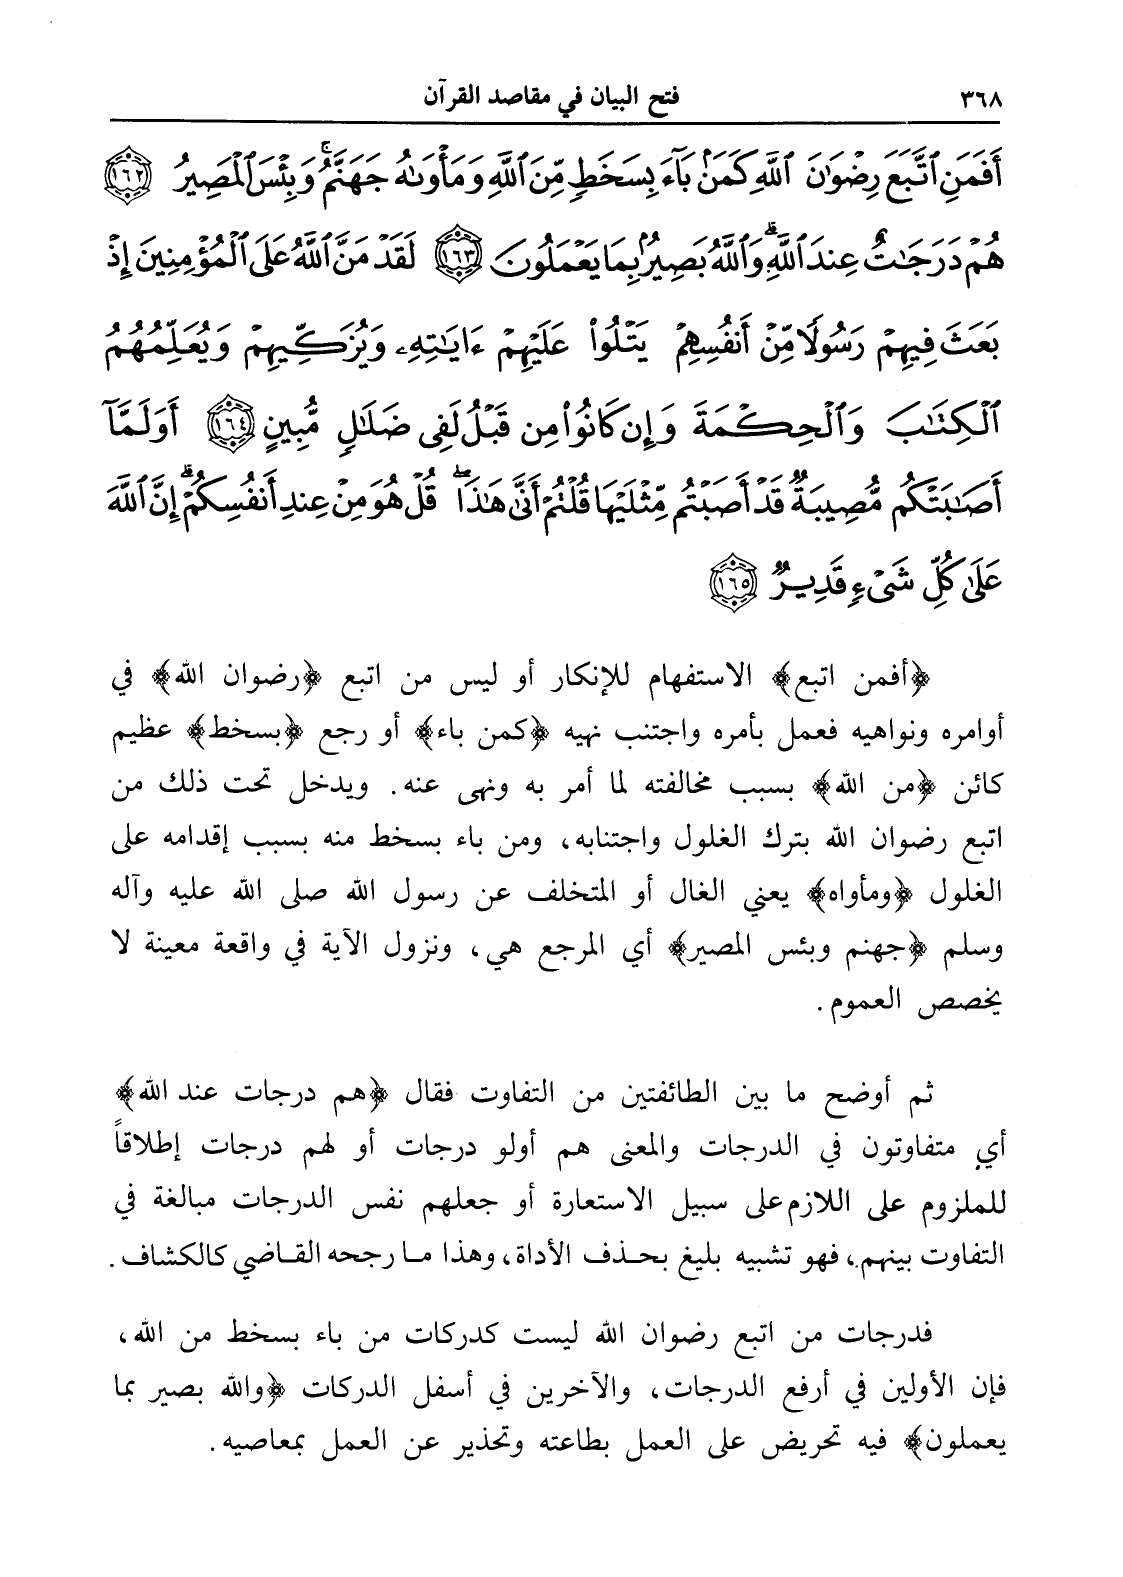 ٣٦٨ فتح البيان في مقاصد القرآن
أَفَمَنِ ٱتَّبَعَ رِضْوَٰنَ ٱللَّهِ كَمَنۢ بَآءَ بِسَخَطٍ مِّنَ ٱللَّهِ وَمَأْوَىٰهُ جَهَنَّمُ ۚ وَبِئْسَ ٱلْمَصِيرُ ١٦٢
هُمْ دَرَجَٰتٌ عِندَ ٱللَّهِ ۗ وَٱللَّهُ بَصِيرٌۢ بِمَا يَعْمَلُونَ ١٦٣ لَقَدْ مَنَّ ٱللَّهُ عَلَى ٱلْمُؤْمِنِينَ إِذْ
بَعَثَ فِيهِمْ رَسُولًا مِّنْ أَنفُسِهِمْ يَتْلُوا۟ عَلَيْهِمْ ءَايَٰتِهِۦ وَيُزَكِّيهِمْ وَيُعَلِّمُهُمُ
ٱلْكِتَٰبَ وَٱلْحِكْمَةَ وَإِن كَانُوا۟ مِن قَبْلُ لَفِى ضَلَٰلٍ مُّبِينٍ ١٦٤ أَوَلَمَّآ
أَصَٰبَتْكُم مُّصِيبَةٌ قَدْ أَصَبْتُم مِّثْلَيْهَا قُلْتُمْ أَنَّىٰ هَٰذَا ۖ قُلْ هُوَ مِنْ عِندِ أَنفُسِكُمْ ۗ إِنَّ ٱللَّهَ
عَلَىٰ كُلِّ شَىْءٍ قَدِيرٌ ١٦٥
﴿أفمن اتبع﴾ الاستفهام للإنكار أو ليس من اتبع ﴿رضوان الله﴾ في
أوامره ونواهيه فعمل بأمره واجتنب نهيه ﴿كمن باء﴾ أو رجع ﴿بسخط﴾ عظيم
كائن ﴿من الله﴾ بسبب مخالفته لما أمر به ونهى عنه. ويدخل تحت ذلك من
اتبع رضوان الله بترك الغلول واجتنابه، ومن باء بسخط منه بسبب إقدامه على
الغلول ﴿ومأواه﴾ يعني الغال أو المتخلف عن رسول الله صلى الله عليه وآله
وسلم ﴿جهنم وبئس المصير﴾ أي المرجع هي، ونزول الآية في واقعة معينة لا
يخصص العموم.
ثم أوضح ما بين الطائفتين من التفاوت فقال ﴿هم درجات عند الله﴾
أي متفاوتون في الدرجات والمعنى هم أولو درجات أو لهم درجات إطلاقاً
للملزوم على اللازم على سبيل الاستعارة أو جعلهم نفس الدرجات مبالغة في
التفاوت بينهم، فهو تشبيه بليغ بحذف الأداة، وهذا ما رجحه القاضي كالكشاف.
فدرجات من اتبع رضوان الله ليست كدركات من باء بسخط من الله،
فإن الأولين في أرفع الدرجات، والآخرين في أسفل الدركات ﴿والله بصير بما
يعملون﴾ فيه تحريض على العمل بطاعته وتحذير عن العمل بمعاصيه.